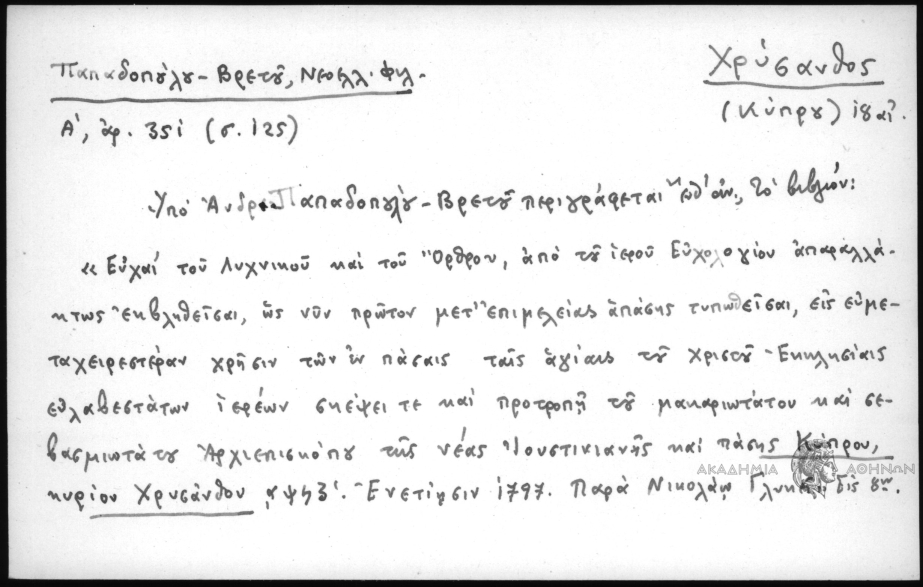 Παπαδοπούλου-Βρετοῦ, Νεοελλ. Φιλ.
Χρύσανθος
Α', ἀρ. 351 (σ. 125)
(Κύπρου) 18 αἰ.
Ὑπὸ Ἀνδρ. Παπαδοπούλου-Βρετοῦ περιγράφεται τὸ βιβλίον:
«Εὐχαὶ τοῦ Λυχνικοῦ καὶ τοῦ Ὄρθρου, ἀπὸ τοῦ ἱεροῦ Εὐχολογίου ἀπαραλλά-
κτως ἐκβληθεῖσαι, ὡς νῦν πρῶτον μετ' ἐπιμελείας ἁπάσης τυπωθεῖσαι, εἰς εὐμε-
ταχειρεστέραν χρῆσιν τῶν ἐν πάσαις ταῖς ἁγίαις τοῦ Χριστοῦ Ἐκκλησίαις
εὐλαβεστάτων ἱερέων σκέψει τε καὶ προτροπῇ τοῦ μακαριωτάτου καὶ σε-
βασμιωτάτου Ἀρχιεπισκόπου τῆς νέας Ἰουστινιανῆς καὶ πάσης Κύπρου,
ΑΚΑΔΗΜΙΑ ΑΘΗΝΩΝ
κυρίου Χρυσάνθου ͵αψϟζ'. Ἐνετίῃσιν 1797. Παρὰ Νικολάῳ Γλυκεῖ εἰς 8ον.